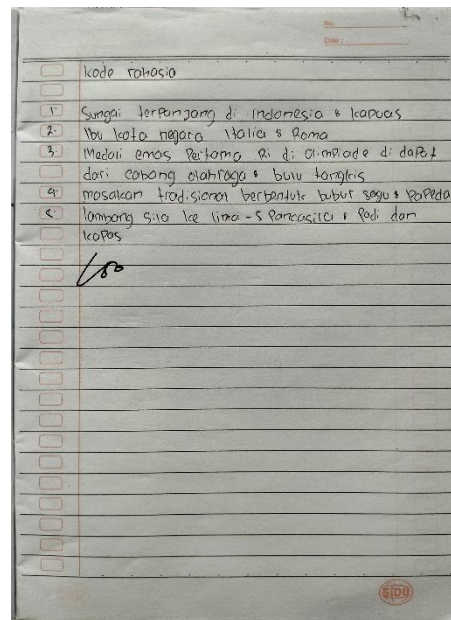 No.
Date :
kode rahasia
1. Sungai terpanjang di Indonesia : kapuas
2. Ibu kota negara Italia : Roma
3. Medali emas Pertama Ri di Olimpiade di dapat
dari cabang olahraga : bulu tangkis
4. masakan tradisional berbentuk bubur sagu : Papeda
5. lambang sila ke lima -5 Pancasila : Padi dan
kapas
100
SIDU